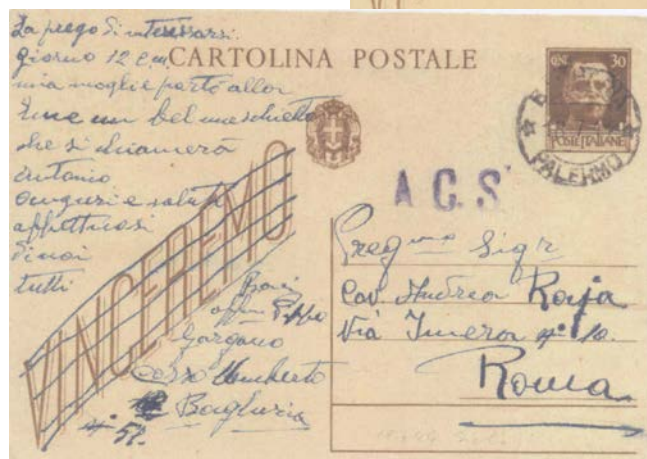 La prego di interessarsi.
giorno 12 c.m.
mia moglie partò allor
che un bel maschietto
che si chiamerà
Antonio
auguri e saluti
affettuosi
di noi
tutti
CARTOLINA POSTALE
CENT. 30
POSTE ITALIANE
PALERMO
A C.S
VINCEREMO
Baci
Peppe
Gargano
Corso Umberto
n° 52.
Bagheria
Preg mo Sigr
Cav. Andrea Raja
Via Imera n° 10.
Roma